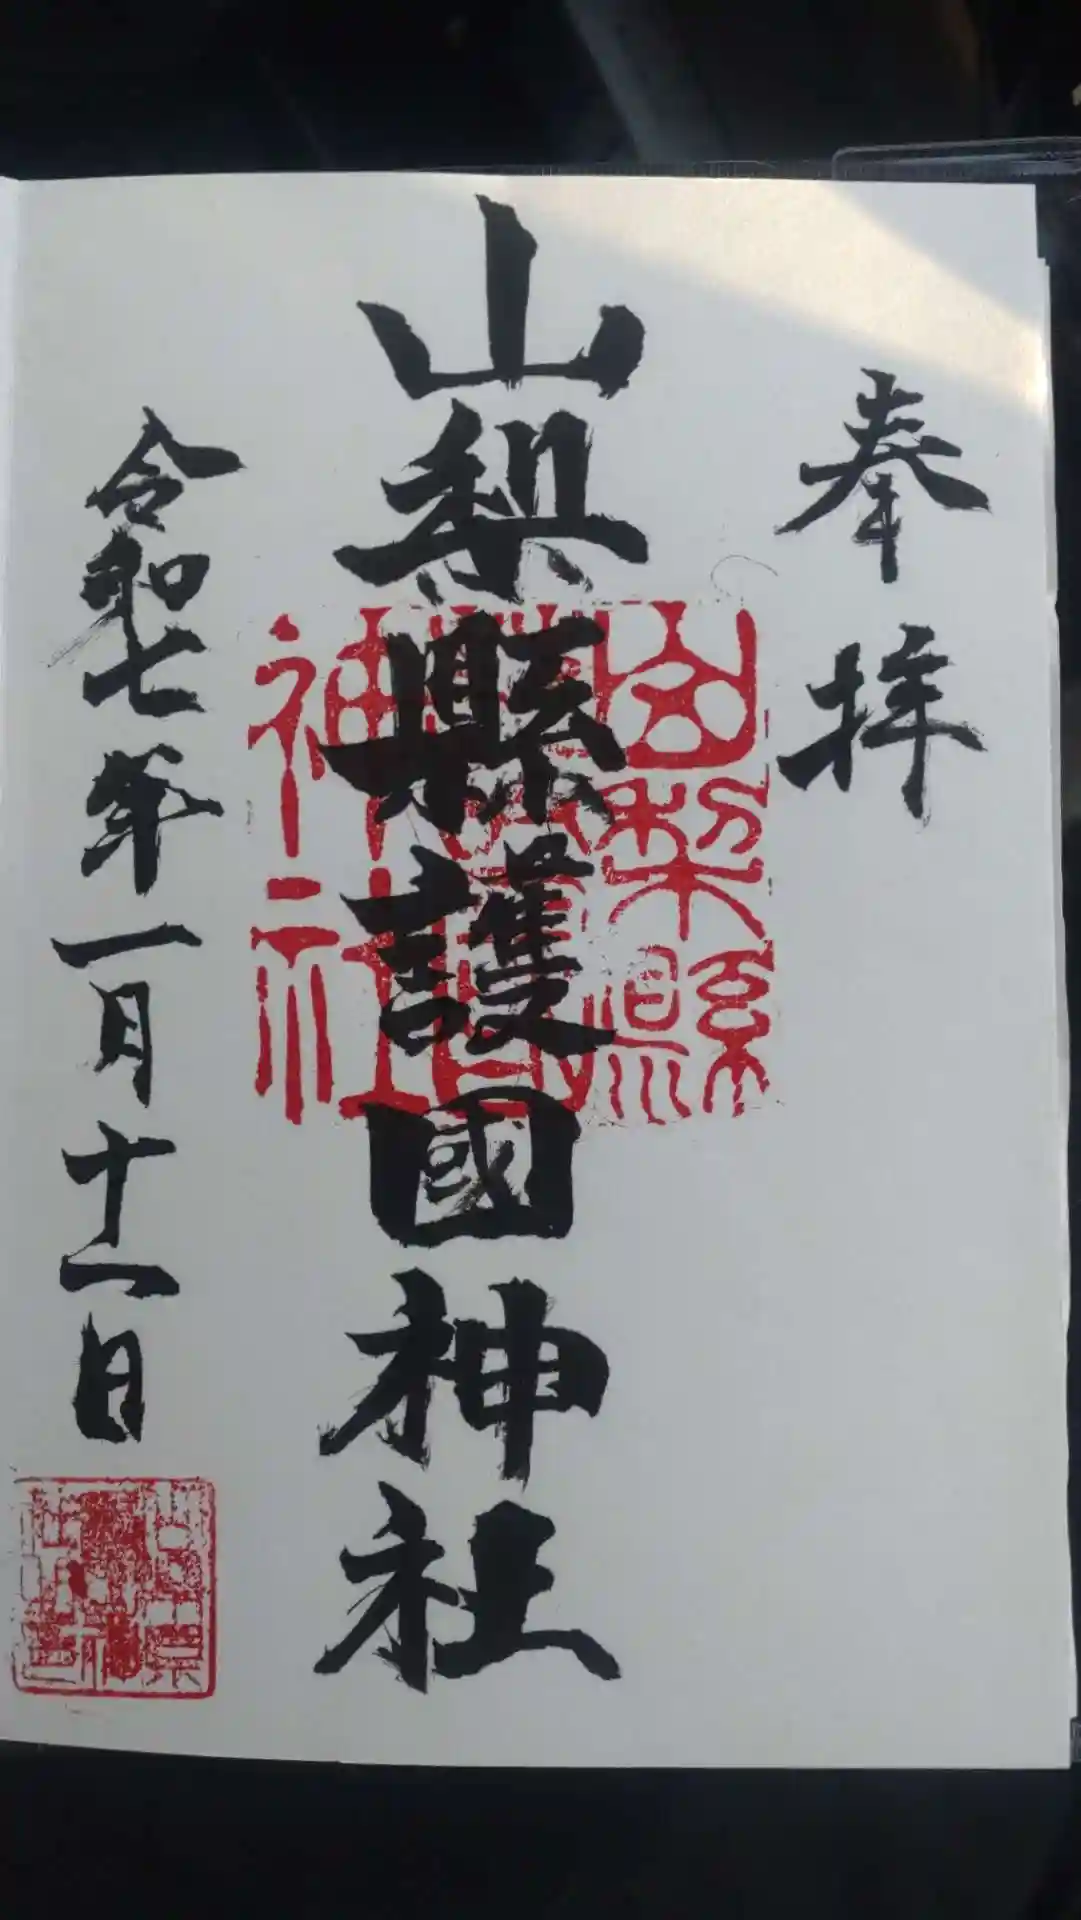 奉拝
山梨縣護國神社
山梨縣護國神社
令和七年一月十一日